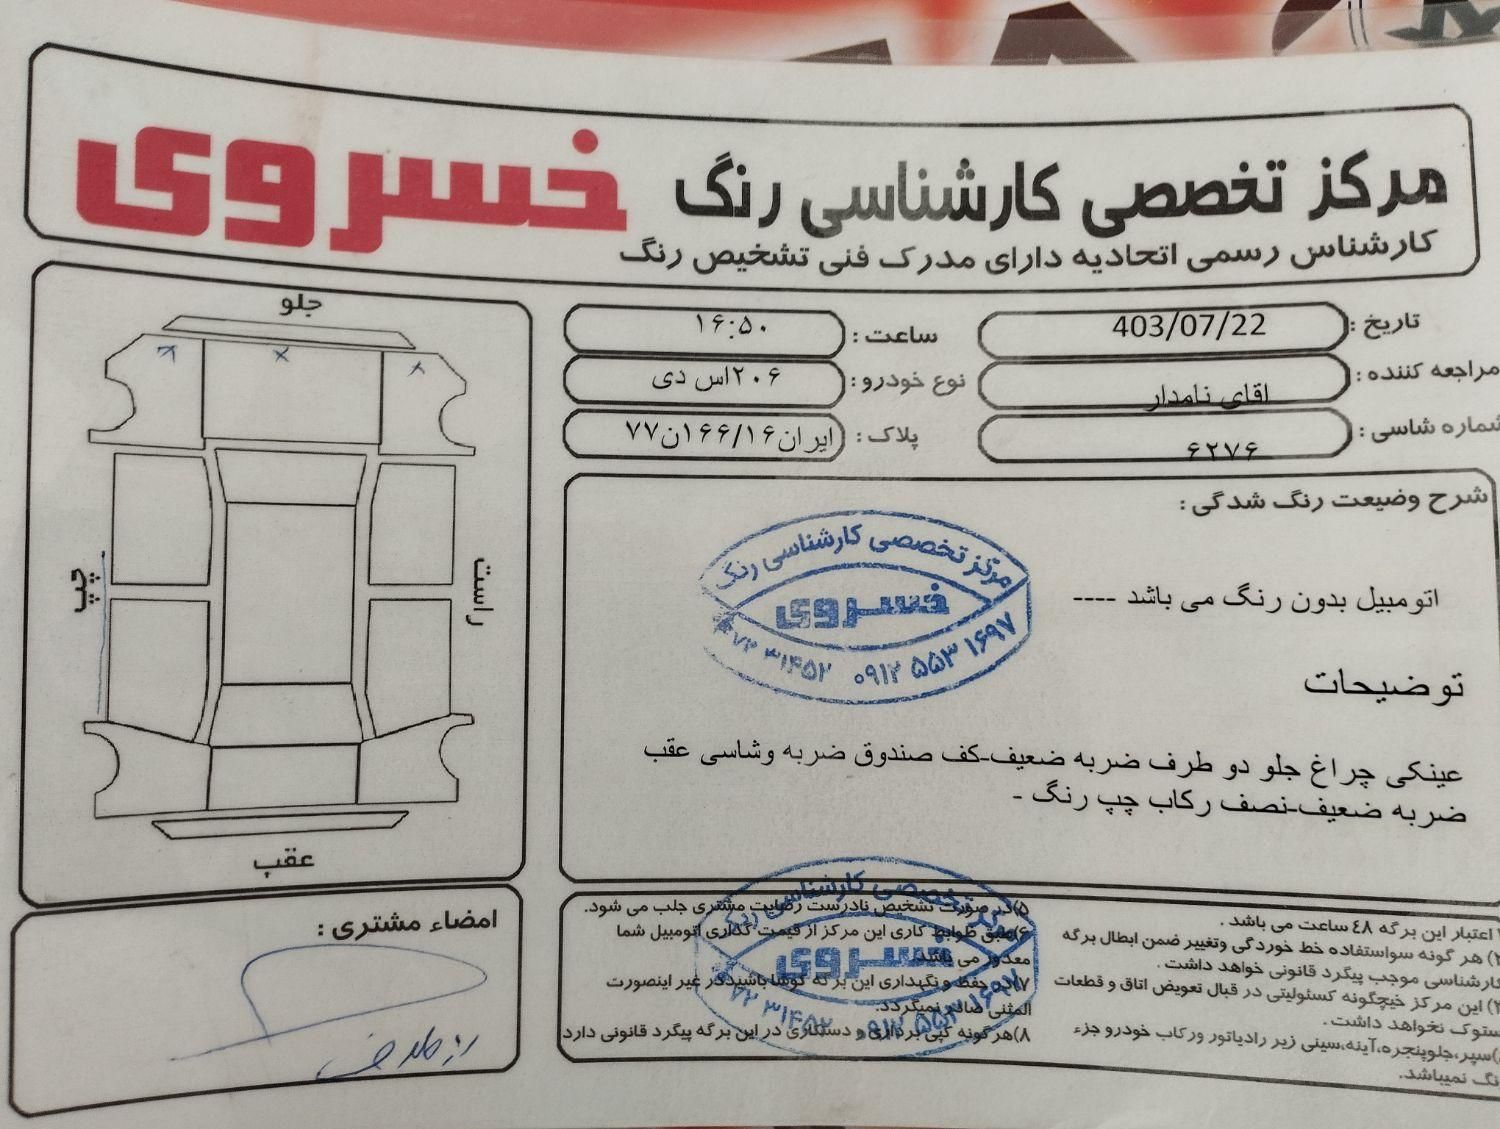 مرکز تخصصی کارشناسی رنگ خسروی
کارشناس رسمی اتحادیه دارای مدرک فنی تشخیص رنگ
تاریخ : 403/07/22
ساعت : ۱۶:۵۰
مراجعه کننده : اقای نامدار
نوع خودرو : ۲۰۶اس دی
شماره شاسی : ۶۲۷۶
پلاک : ایران۱۶۶/۱۶ن۷۷
جلو
راست
چپ
عقب
شرح وضیعت رنگ شدگی :
اتومبیل بدون رنگ می باشد ----
توضیحات
عینکی چراغ جلو دو طرف ضربه ضعیف-کف صندوق ضربه وشاسی عقب
ضربه ضعیف-نصف رکاب چپ رنگ -
مرکز تخصصی کارشناسی رنگ
خسروی
۰۹۱۲ ۵۵۳ ۱۶۹۷
اعتبار این برگه ٤٨ ساعت می باشد .
هر گونه سواستفاده خط خوردگی وتغییر ضمن ابطال برگه
کارشناسی موجب پیگرد قانونی خواهد داشت .
این مرکز خیچگونه کسئولیتی در قبال تعویض اتاق و قطعات
ستوک نخواهد داشت .
سپر،جلوپنجره،آینه،سینی زیر رادیاتور ورکاب خودرو جزء
رنگ نمیباشد.
۵)در صورت تشخیص نادرست رضایت مشتری جلب می شود.
۶)طبق ظوابط کاری این مرکز از قیمت گذاری اتومبیل شما
معذور می باشد.
۷)در حفظ و نگهداری این برگه کوشا باشید در غیر اینصورت
المثنی صادر نمیگردد.
۸)هرگونه کپی برداری و دستکاری در این برگه پیگرد قانونی دارد
مرکز تخصصی کارشناسی رنگ
خسروی
۰۹۱۲ ۵۵۳ ۱۶۹۷
امضاء مشتری :